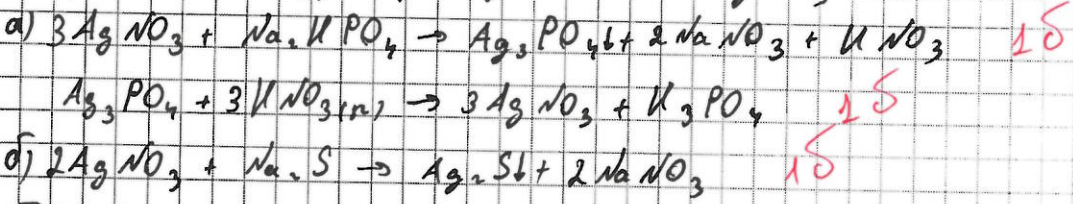 а) 3AgNO₃ + Na₂HPO₄ → Ag₃PO₄↓ + 2NaNO₃ + HNO₃ 1б
Ag₃PO₄ + 3HNO₃(к) → 3AgNO₃ + H₃PO₄ 1б
б) 2AgNO₃ + Na₂S → Ag₂S↓ + 2NaNO₃ 1б